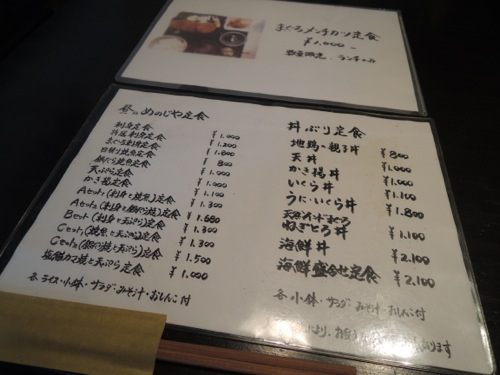 まぐろメンチカツ定食
¥1,000-
数量限定 ランチのみ
昼の めのじや定食
刺身定食 ¥1,000
特選刺身定食 ¥1,200
まぐろ刺身定食 ¥1,800
日替り焼魚定食 ¥800
銀だら焼魚定食 ¥1,000
天ぷら定食 ¥1,000
かき揚定食 ¥1,100
Aセット(刺身と焼魚)定食 ¥1,300
Aセット(刺身と銀だら焼)定食 ¥1,680
Bセット(刺身と天ぷら)定食 ¥1,300
Cセット(焼魚と天ぷら)定食 ¥1,300
Cセット(銀だら焼と天ぷら)定食 ¥1,500
塩鮭カマ焼と天ぷら定食 ¥1,000
各 ライス・小鉢・サラダ・みそ汁・おしんこ付
丼ぶり定食
地鶏の親子丼 ¥800
天丼 ¥1,000
かき揚丼 ¥1,000
いくら丼 ¥1,100
うに・いくら丼 ¥1,800
ねぎとろ丼 ¥1,100
海鮮丼 ¥2,100
海鮮盛合せ定食 ¥2,100
各 小鉢・サラダ・みそ汁・おしんこ付
により、お
あります